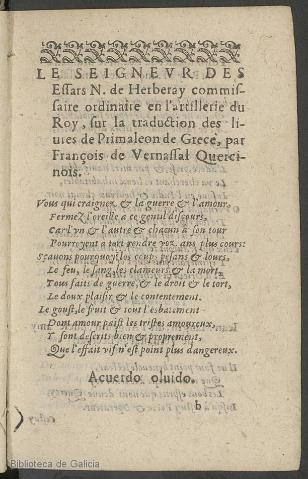 LE SEIGNEVR DES
Essars N. de Herberay commis-
saire ordinaire en l'artillerie du
Roy, sur la traduction des li-
ures de Primaleon de Grece, par
François de Vernassal Querci-
nois.
Vous qui craignez & la guerre & l'amour,
Fermez l'oreille a ce gentil discours,
Car l'vn & l'autre & chacun à son tour
Pourroyent a tort rendre voz ans plus cours:
Sçauons pourquoy? les coups pesans & lours,
Le feu, le sang, les clameurs & la mort,
Tous faits de guerre, & le droit & le tort,
Le doux plaisir & le contentement.
Le goust, le fruit & tout l'esbatement
Dont amour paist les tristes amoureux,
Y sont descrits bien & proprement,
Que l'effait vif n'est point plus dangereux.
Acuerdo oluido.
b
Biblioteca de Galicia